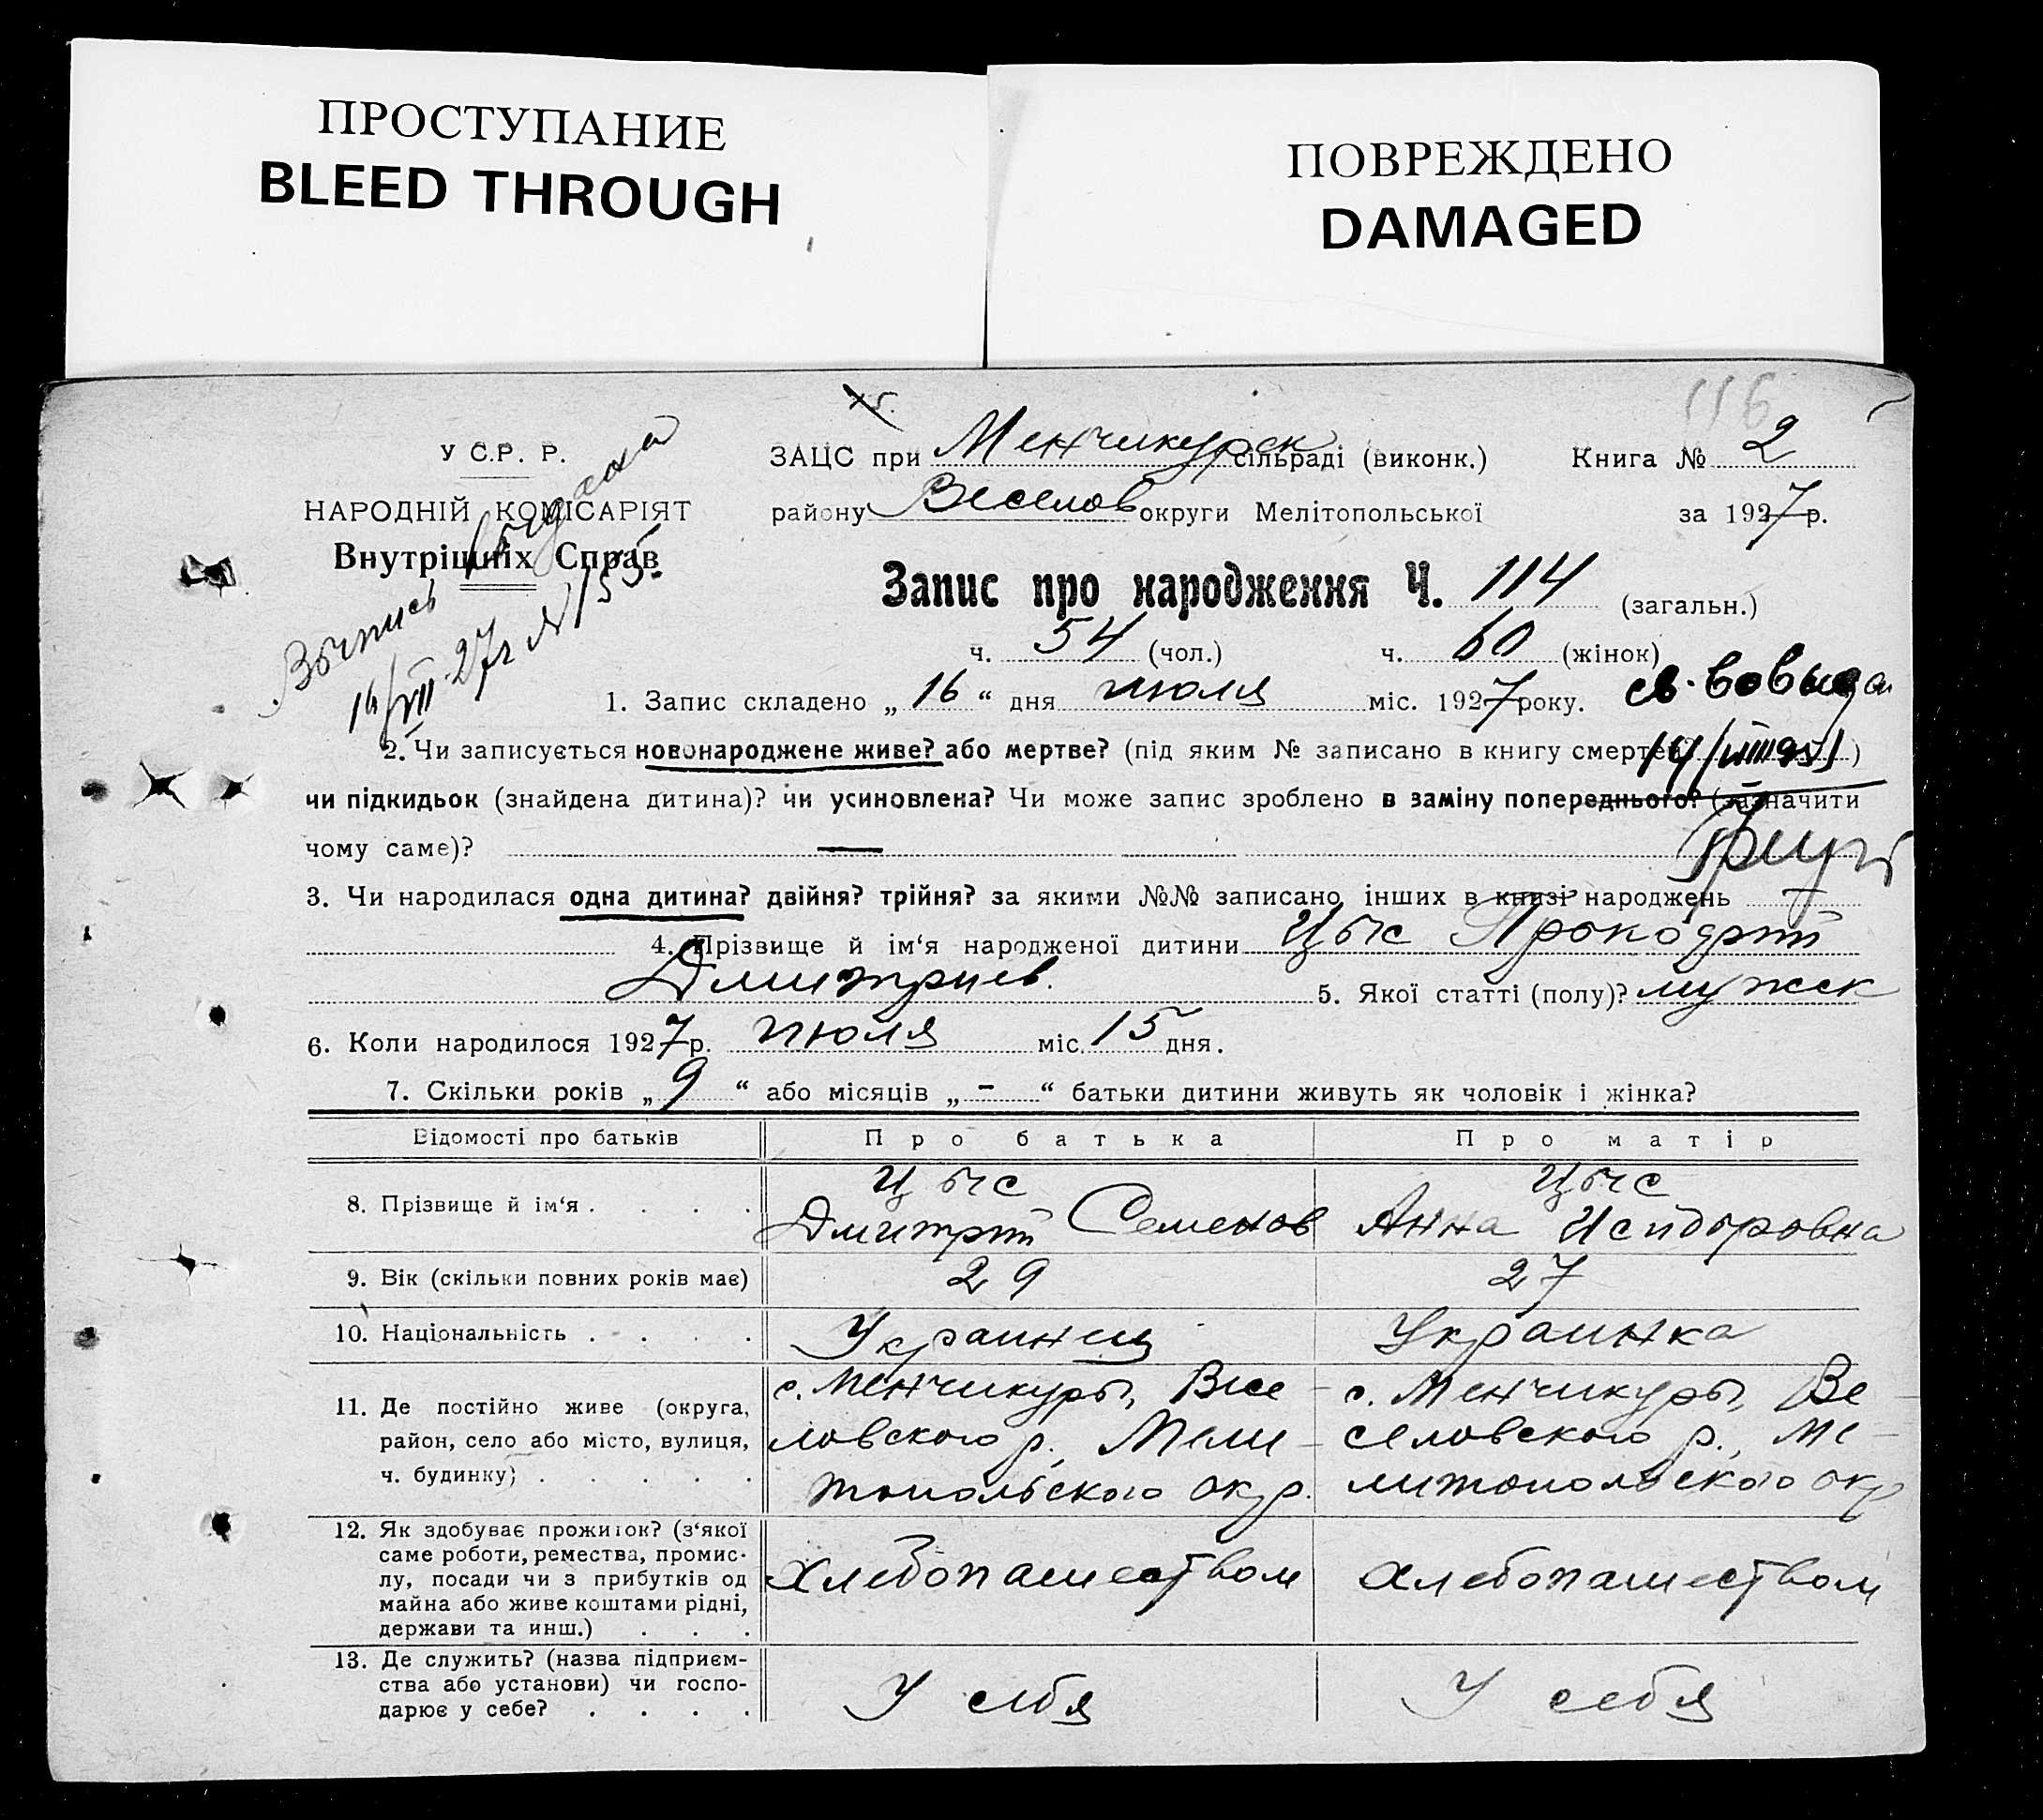 ПРОСТУПАНИЕ
BLEED THROUGH
ПОВРЕЖДЕНО
DAMAGED
116
У С.Р. Р.
НАРОДНІЙ КОМІСАРІЯТ
Внутрішніх Справ
Выпись выдана
16/VII 27г №155.
ЗАЦС при Менчикурск сільраді (виконк.) Книга № 2
району Веселов округи Мелітопольської за 1927 р.
Запис про народження Ч. 114 (загальн.)
ч. 54 (чол.) ч. 60 (жінок)
1. Запис складено „ 16 “ дня июля міс. 1927 року.
2. Чи записується новонароджене живе? або мертве? (під яким № записано в книгу смертей )
чи підкидьок (знайдена дитина)? чи усиновлена? Чи може запис зроблено в заміну попереднього? (зазначити
чому саме)? —
3. Чи народилася одна дитина? двійня? трійня? за якими №№ записано інших в книзі народжень
4. Прізвище й ім‘я народженої дитини Цыс Прокофий
Дмитриев. 5. Якої статті (полу)? мужск
6. Коли народилося 1927 р. июля міс. 15 дня.
7. Скільки років „ 9 “ або місяців „ – “ батьки дитини живуть як чоловік і жінка?
Відомості про батьків Про батька Про матір
8. Прізвище й ім‘я . . . . Цыс Дмитрий Семенов Цыс Анна Исидоровна
9. Вік (скільки повних років має) 29 27
10. Національність . . . . Украинец Украинка
11. Де постійно живе (округа,
район, село або місто, вулиця,
ч. будинку) . . . . .
с. Менчикуры, Весе-
ловского р. Мели-
топольского окр.
с. Менчикуры, Ве-
селовского р., Ме-
литопольского окр
12. Як здобуває прожиток? (з‘якої
саме роботи, ремества, промис-
лу, посади чи з прибутків од
майна або живе коштами рідні,
держави та инш.) . . .
Хлебопашеством
Хлебопашеством
13. Де служить? (назва підприєм-
ства або установи) чи госпо-
дарює у себе? . . . .
У себя
У себя